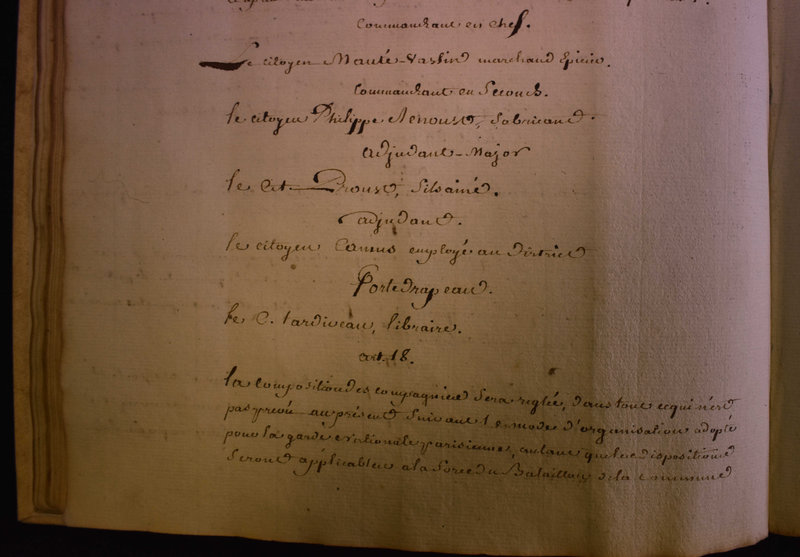 Commandant en chef.
Le citoyen Mauté-Vastin marchand Epicier.
Commandant en Second.
le citoyen Philippe Renoust, fabricant.
adjudant-Major
le Cit Proust, fils ainé.
adjudant.
le citoyen Camus employé au District
Porte drapeaud.
le C. tardiveau, libraire.
art. 18.
la composition des compagnies sera reglée, dans tout ce qui n'est
pas prevû au présent suivant le mode d'organisation adopté
pour la garde nationale parisienne, autant que les dispositions
seront applicables a la force du Bataillon de la commune